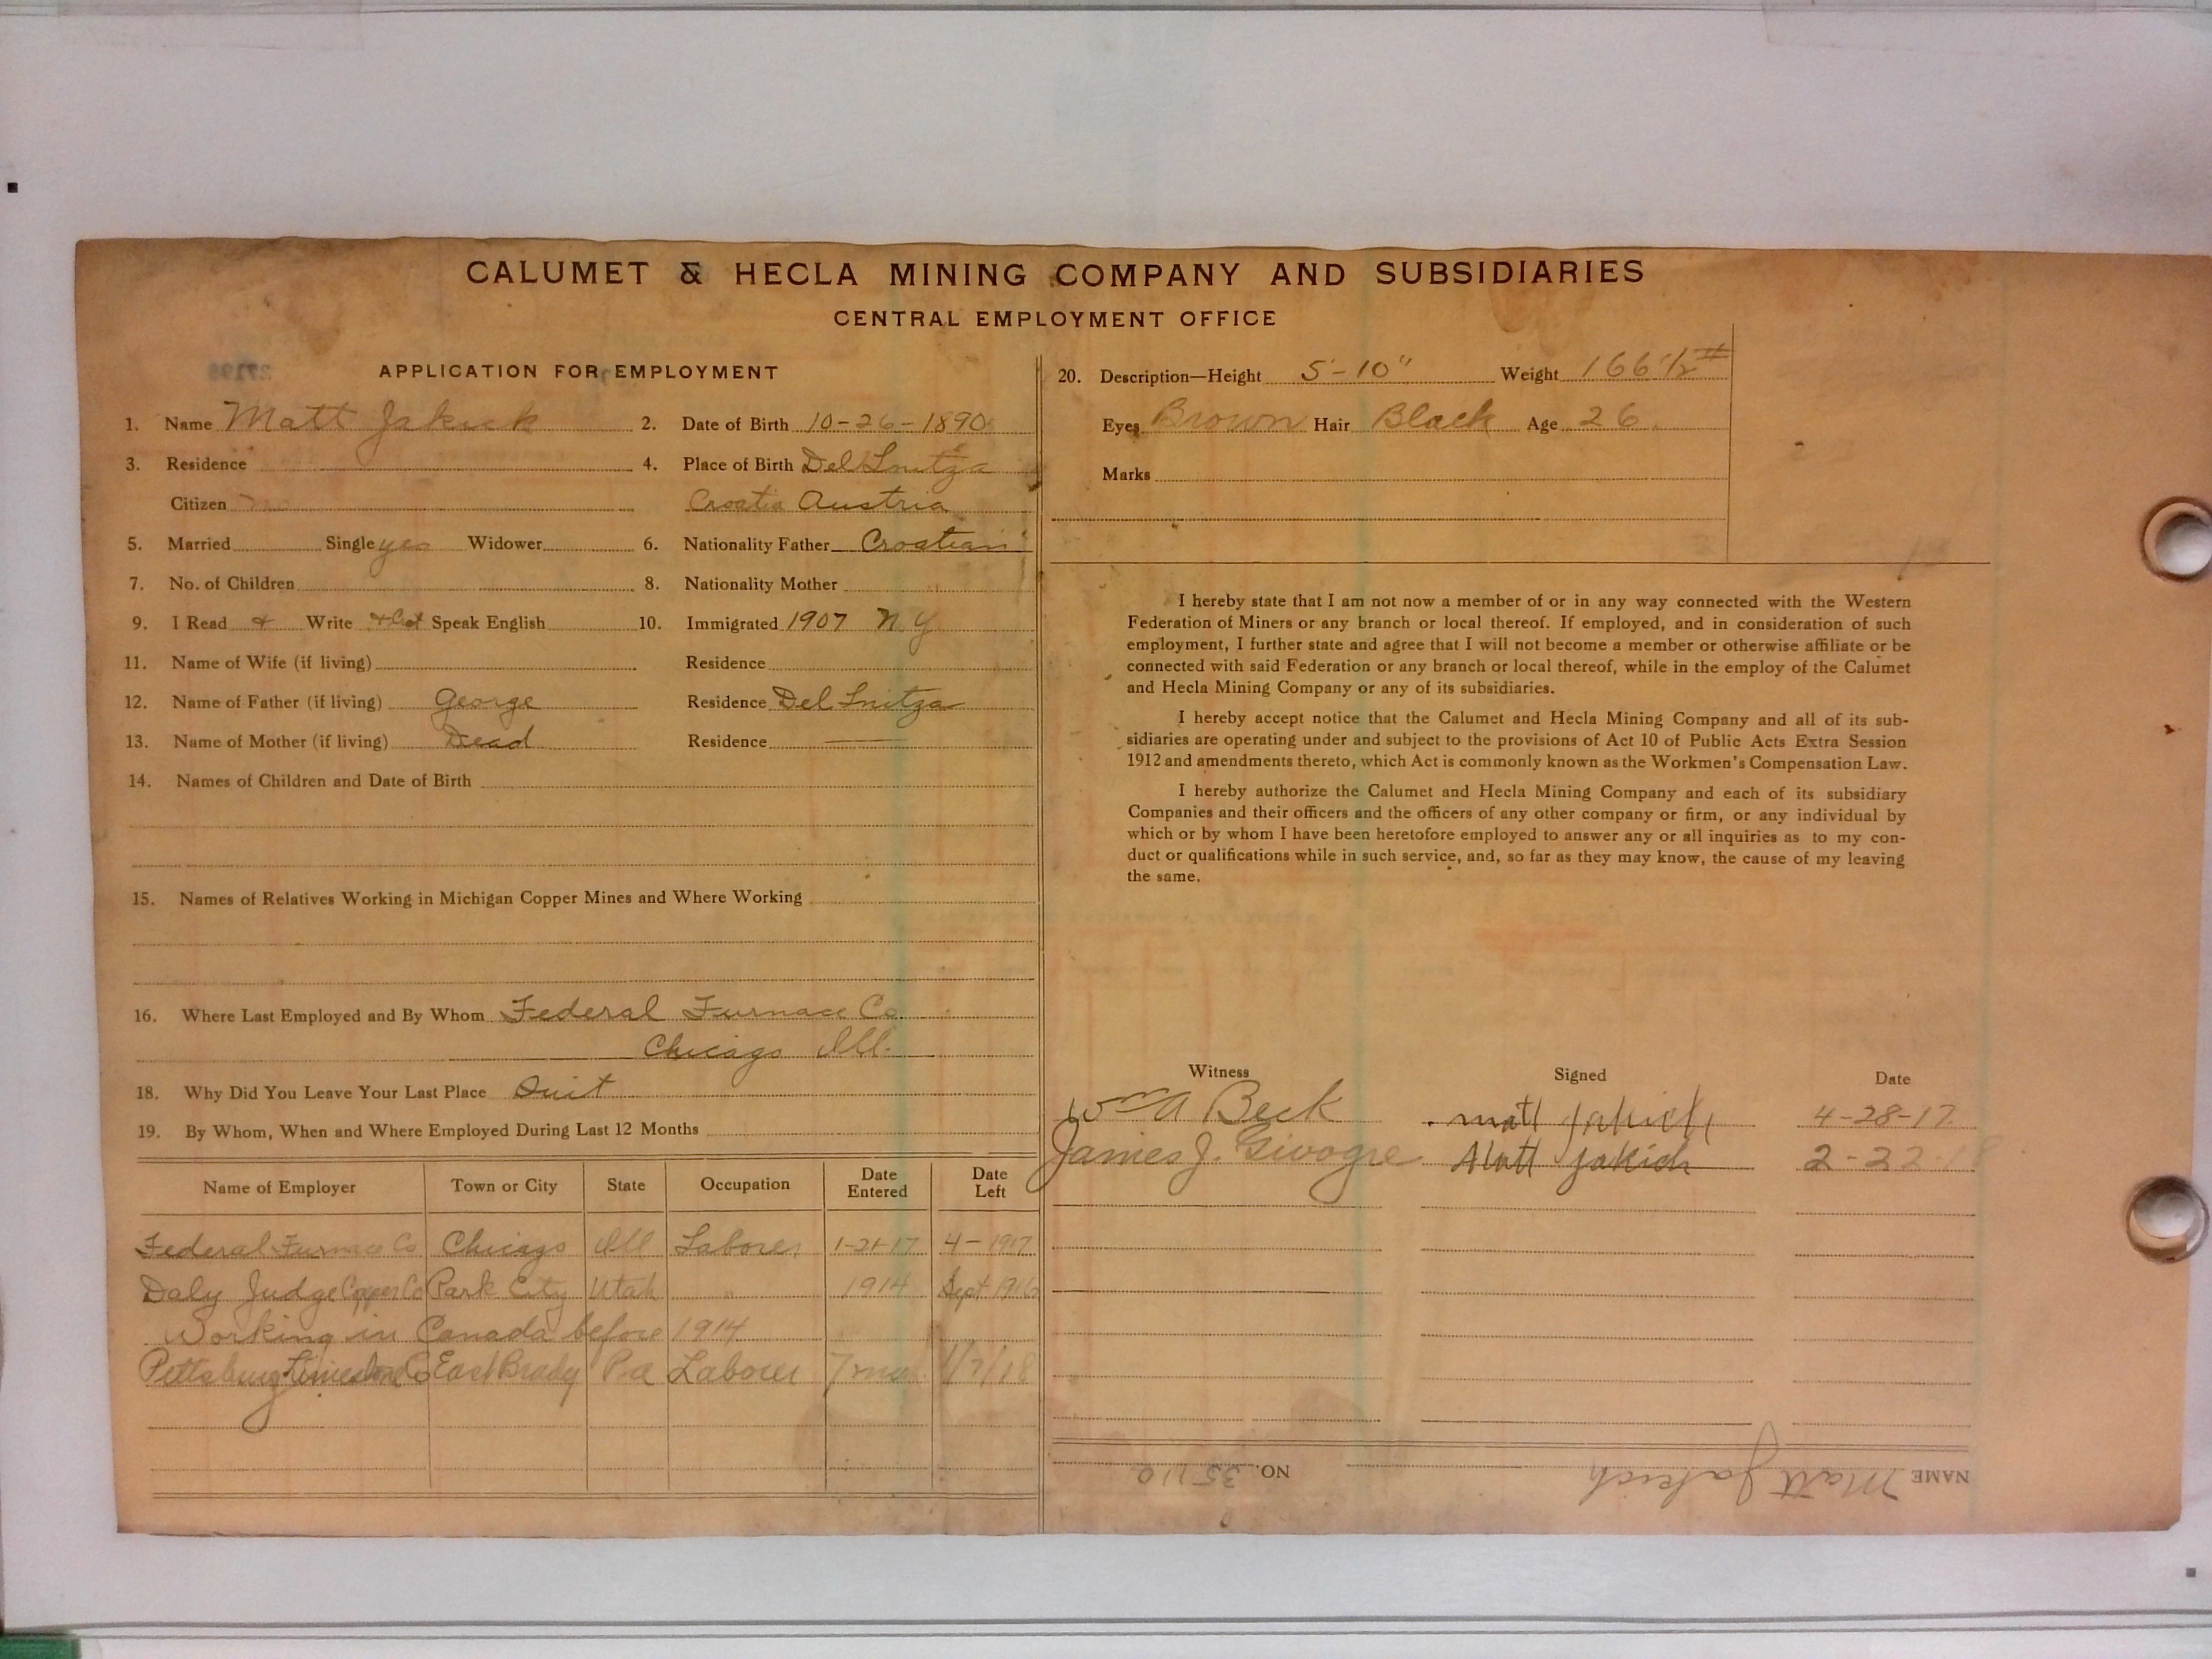 CALUMET & HECLA MINING COMPANY AND SUBSIDIARIES
CENTRAL EMPLOYMENT OFFICE
APPLICATION FOR EMPLOYMENT
1. Name Matt Jakich 2. Date of Birth 10-26-1890
3. Residence 4. Place of Birth Del Snitza
Citizen no Croatia Austria
5. Married Single yes Widower 6. Nationality Father Croatian
7. No. of Children 8. Nationality Mother
9. I Read & Write Speak English 10. Immigrated 1907 N.Y
11. Name of Wife (if living) Residence
12. Name of Father (if living) George Residence Del Snitza
13. Name of Mother (if living) Dead Residence
14. Names of Children and Date of Birth
15. Names of Relatives Working in Michigan Copper Mines and Where Working
16. Where Last Employed and By Whom Federal Furnace Co
Chicago Ill.
18. Why Did You Leave Your Last Place Quit
19. By Whom, When and Where Employed During Last 12 Months
Name of Employer Town or City State Occupation Date Entered Date Left
Federal Furnace Co Chicago Ill Laborer 1-21-17 4-1917
Daly Judge Copper Co Park City Utah " 1914 Sept 1916
Working in Canada before 1914
Pittsburg Limestone Co East Brady Pa Laborer 7 mo 1/7/18
20. Description—Height 5'-10" Weight 166 1/2 #
Eyes Brown Hair Black Age 26.
Marks
I hereby state that I am not now a member of or in any way connected with the Western
Federation of Miners or any branch or local thereof. If employed, and in consideration of such
employment, I further state and agree that I will not become a member or otherwise affiliate or be
connected with said Federation or any branch or local thereof, while in the employ of the Calumet
and Hecla Mining Company or any of its subsidiaries.
I hereby accept notice that the Calumet and Hecla Mining Company and all of its sub-
sidiaries are operating under and subject to the provisions of Act 10 of Public Acts Extra Session
1912 and amendments thereto, which Act is commonly known as the Workmen's Compensation Law.
I hereby authorize the Calumet and Hecla Mining Company and each of its subsidiary
Companies and their officers and the officers of any other company or firm, or any individual by
which or by whom I have been heretofore employed to answer any or all inquiries as to my con-
duct or qualifications while in such service, and, so far as they may know, the cause of my leaving
the same.
Witness Signed Date
Wm A Beck matt jakich 4-28-17
James J. Givogre Matt jakich 2-22-18
NAME Matt Jakich NO. 35110